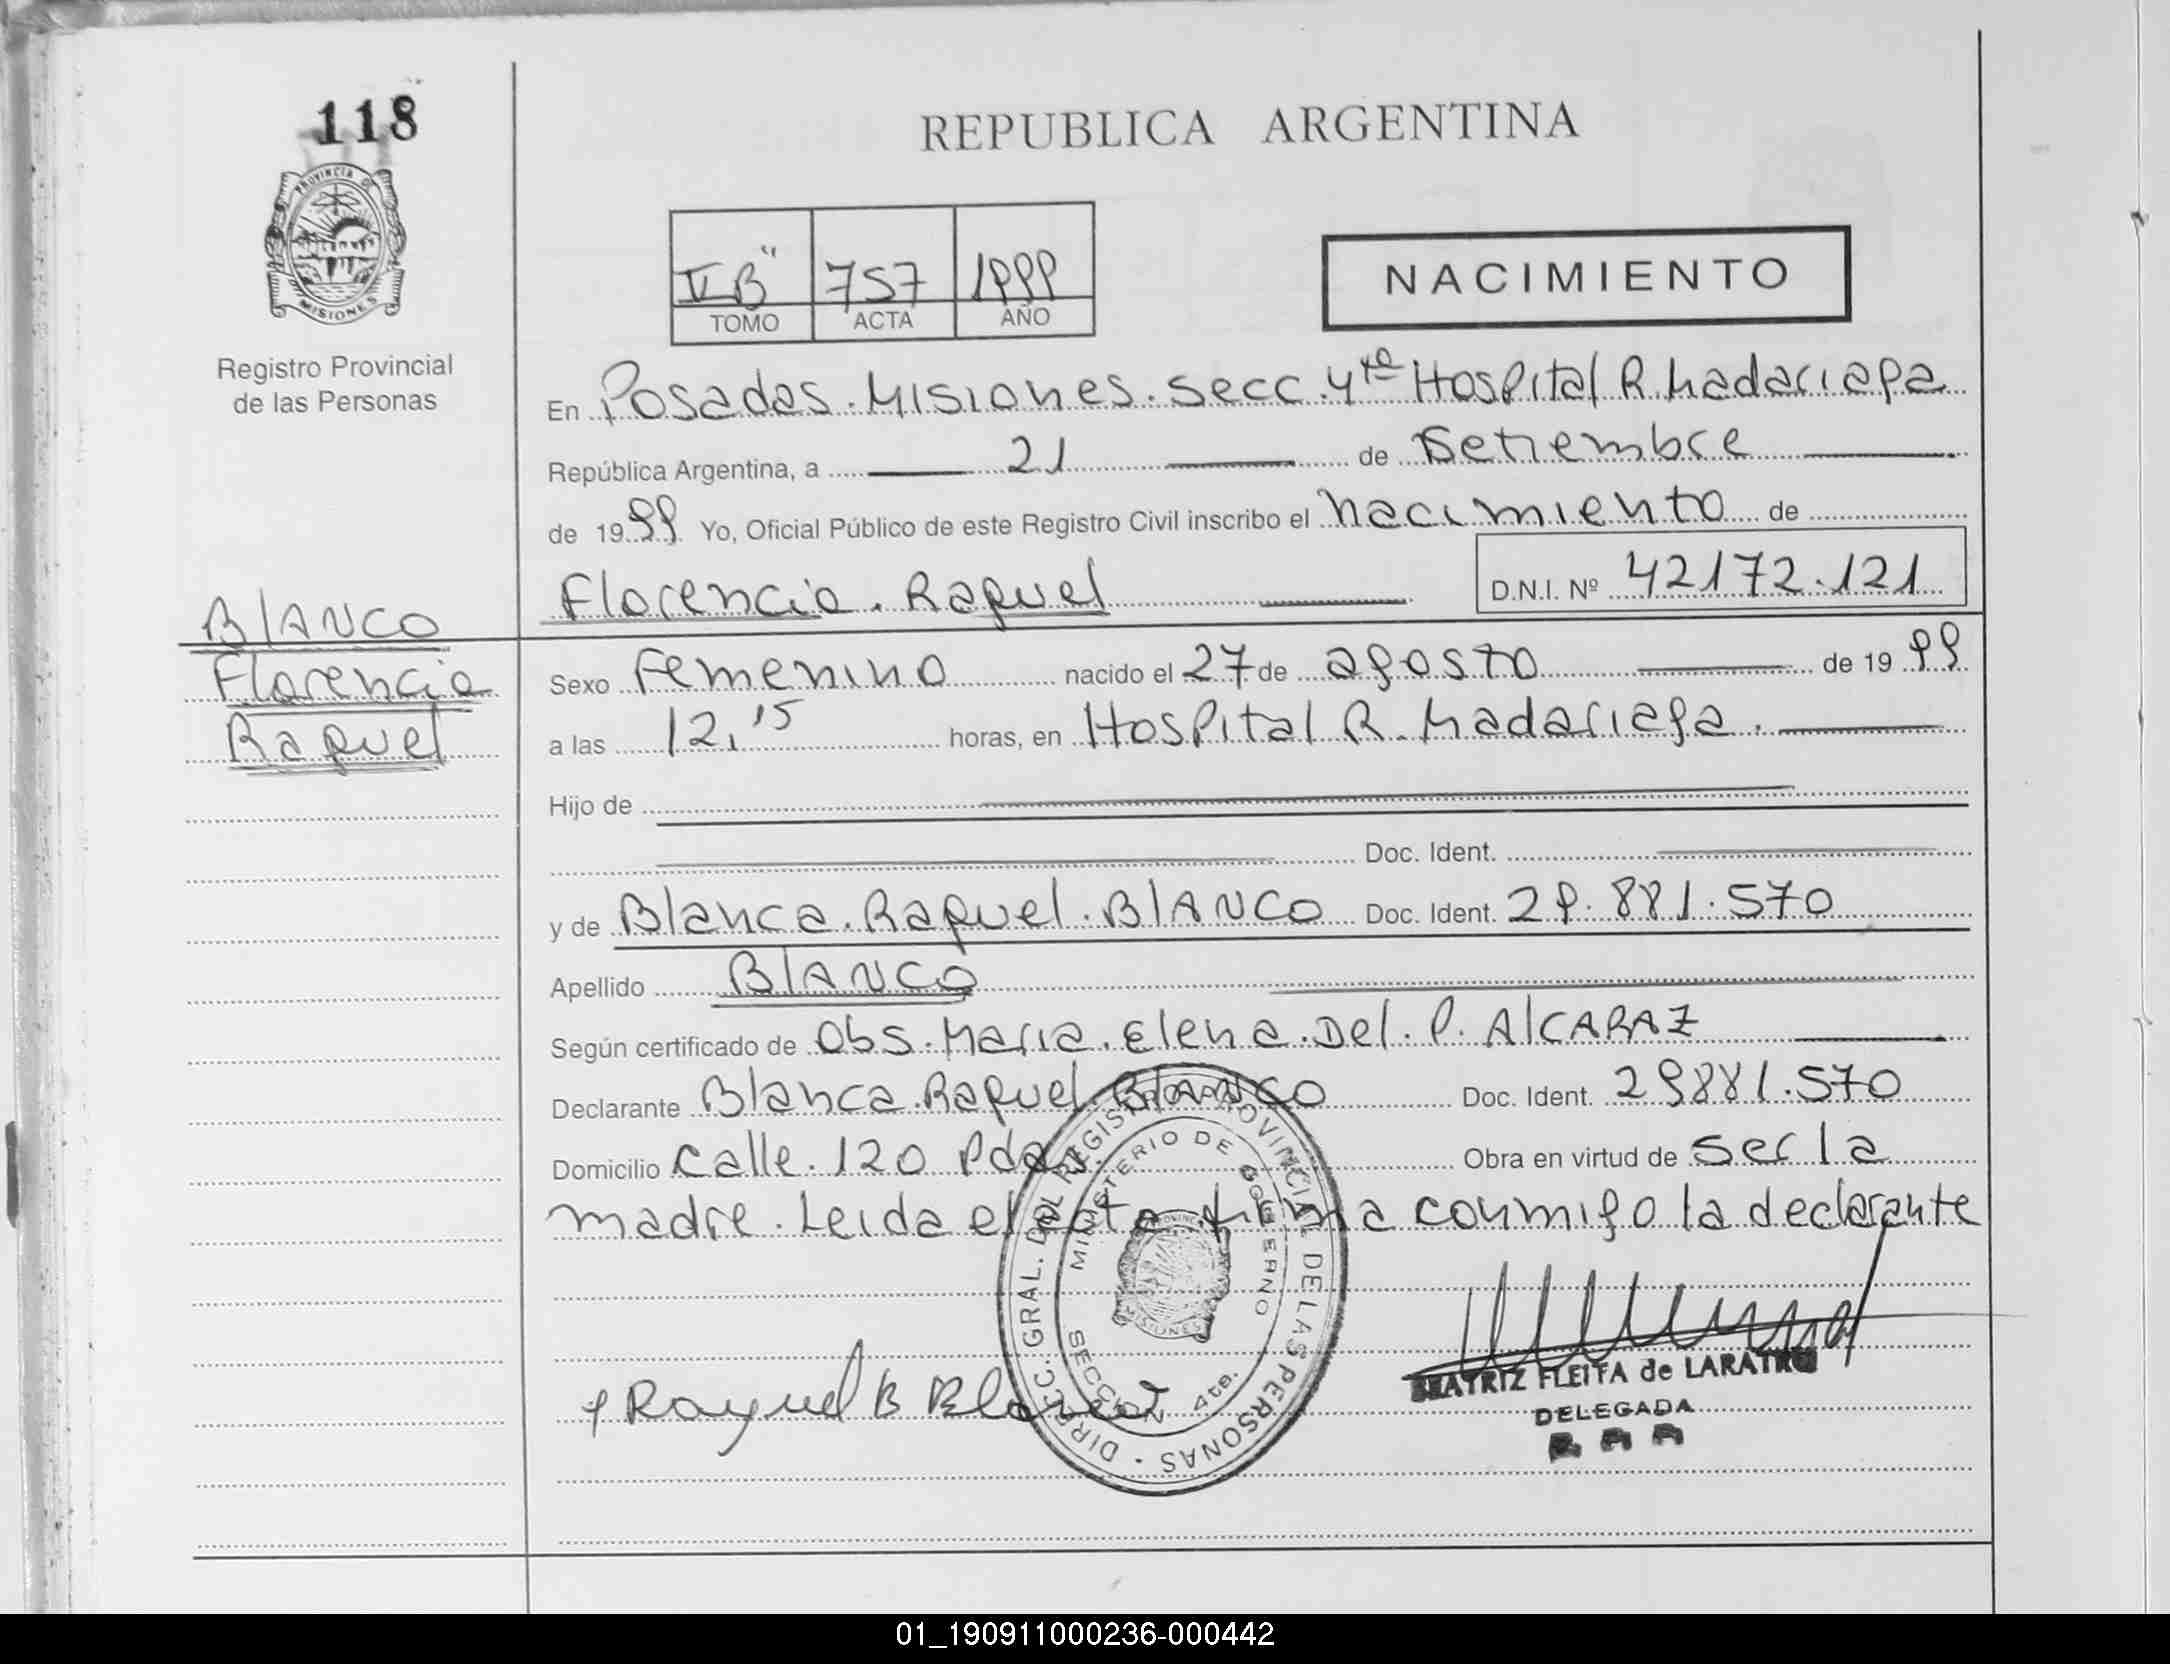 118
PROVINCIA DE
MISIONES
Registro Provincial
de las Personas
REPUBLICA ARGENTINA
V B" 757 1999
TOMO ACTA AÑO
NACIMIENTO
En Posadas. Misiones. Secc. 4ta Hospital R. Madariaga
República Argentina, a 21 de Setiembre
de 1999 Yo, Oficial Público de este Registro Civil inscribo el nacimiento de
Florencia. Raquel D.N.I. Nº 42172.121
BLANCO
Florencia
Raquel
Sexo Femenino nacido el 27 de agosto de 1999
a las 12,15 horas, en Hospital R. Madariaga.
Hijo de
Doc. Ident.
y de Blanca. Raquel. BLANCO Doc. Ident. 29.881.570
Apellido BLANCO
Según certificado de Obs. Maria. Elena. Del. P. ALCARAZ
Declarante Blanca. Raquel BLANCO Doc. Ident. 29881.570
Domicilio Calle. 120 Pdas. Obra en virtud de ser la
madre. Leida el acta firma conmigo la declarante
DIRECC. GRAL. DEL REGISTRO PROVINCIAL DE LAS PERSONAS
MINISTERIO DE GOBIERNO
SECCION 4ta.
MISIONES
Raquel B Blanco
BEATRIZ FLEITA de LARATRO
DELEGADA
01_190911000236-000442